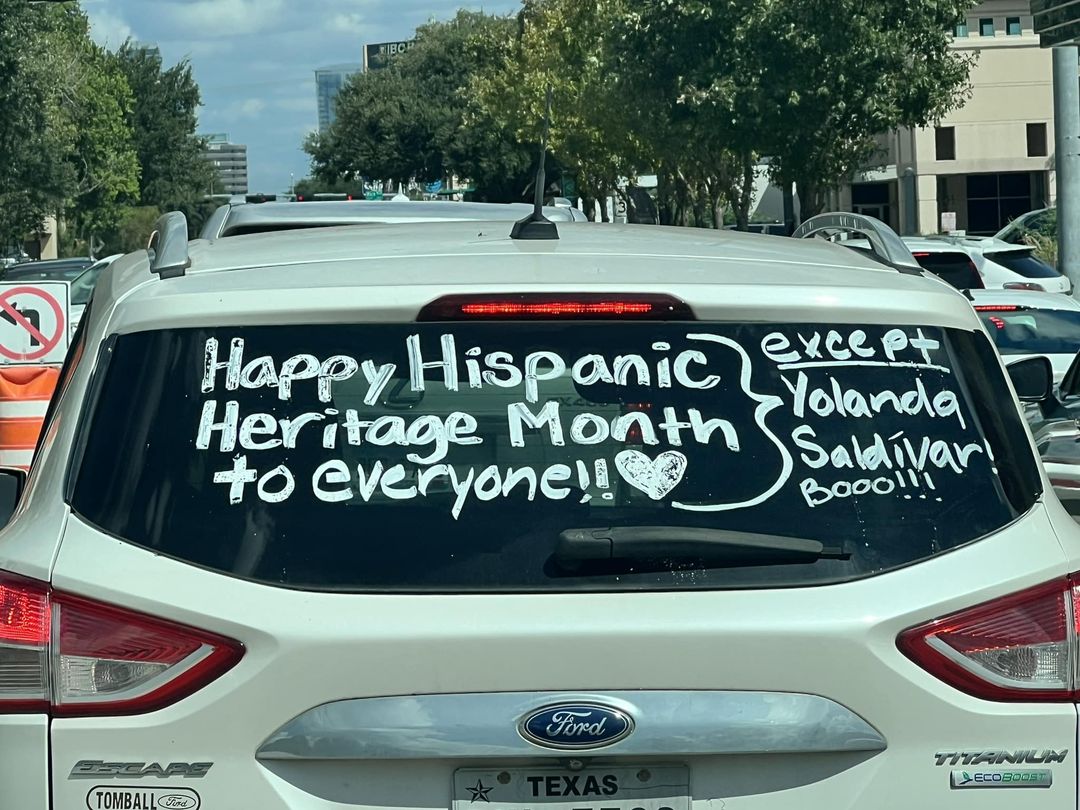 Happy Hispanic
Heritage Month
to everyone!!
except
Yolanda
Saldívar!
Booo!!!
Ford
ESCAPE
TITANIUM
ECOBOOST
TOMBALL Ford
TEXAS